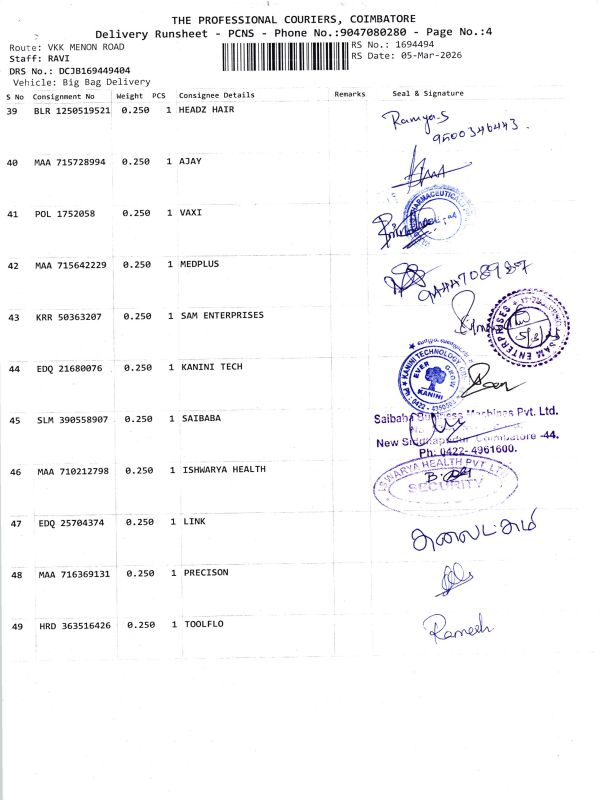 THE PROFESSIONAL COURIERS, COIMBATORE
Delivery Runsheet - PCNS - Phone No.:9047080280 - Page No.:4
Route: VKK MENON ROAD
Staff: RAVI
DRS No.: DCJB169449404
Vehicle: Big Bag Delivery
RS No.: 1694494
RS Date: 05-Mar-2026
S No Consignment No Weight PCS Consignee Details Remarks Seal & Signature
39 BLR 1250519521 0.250 1 HEADZ HAIR Ramya.S
9500346443.
40 MAA 715728994 0.250 1 AJAY
41 POL 1752058 0.250 1 VAXI
PHARMACEUTICAL
42 MAA 715642229 0.250 1 MEDPLUS
43 KRR 50363207 0.250 1 SAM ENTERPRISES
SAM ENTERPRISES
44 EDQ 21680076 0.250 1 KANINI TECH
KANINI TECHNOLOGY
EVER GROW
KANINI
45 SLM 390558907 0.250 1 SAIBABA
Saibaba Business Machines Pvt. Ltd.
New Siddhapudur, Coimbatore -44.
Ph: 0422- 4961600.
46 MAA 710212798 0.250 1 ISHWARYA HEALTH
ISWARYA HEALTH PVT LTD
SECURITY
47 EDQ 25704374 0.250 1 LINK
48 MAA 716369131 0.250 1 PRECISON
49 HRD 363516426 0.250 1 TOOLFLO Ramesh